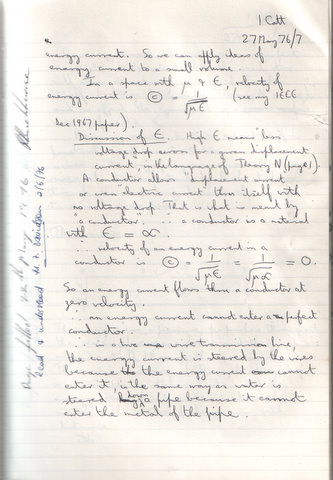 I Catt
27 May 76/7
energy current. So we can apply ideas of
energy current to a small volume.
In a space with μ & ε, velocity of
energy current is Ⓒ = 1/√με (see my IEEE
Dec 1967 paper)
Discussion of ε. High ε means less
voltage drop across for a given displacement
current, in the language of Theory N (page 1).
A conductor allows "displacement current"
or even "electric current" thru itself with
no voltage drop. That is what is meant by
"a conductor". ∴ a conductor is a material
with ε = ∞.
∴ velocity of an energy current in a
conductor is Ⓒ = 1/√με = 1/√μ∞ = 0.
So an energy current flows thru a conductor at
zero velocity.
∴ an energy current cannot enter a perfect
conductor.
∴ in a two wire transmission line,
the energy current is steered by the wires
because the energy current cannot
enter it, in the same way as water is
steered down a pipe because it cannot
enter the metal of the pipe.
Read & understood M. F. Davidson 2/6/76